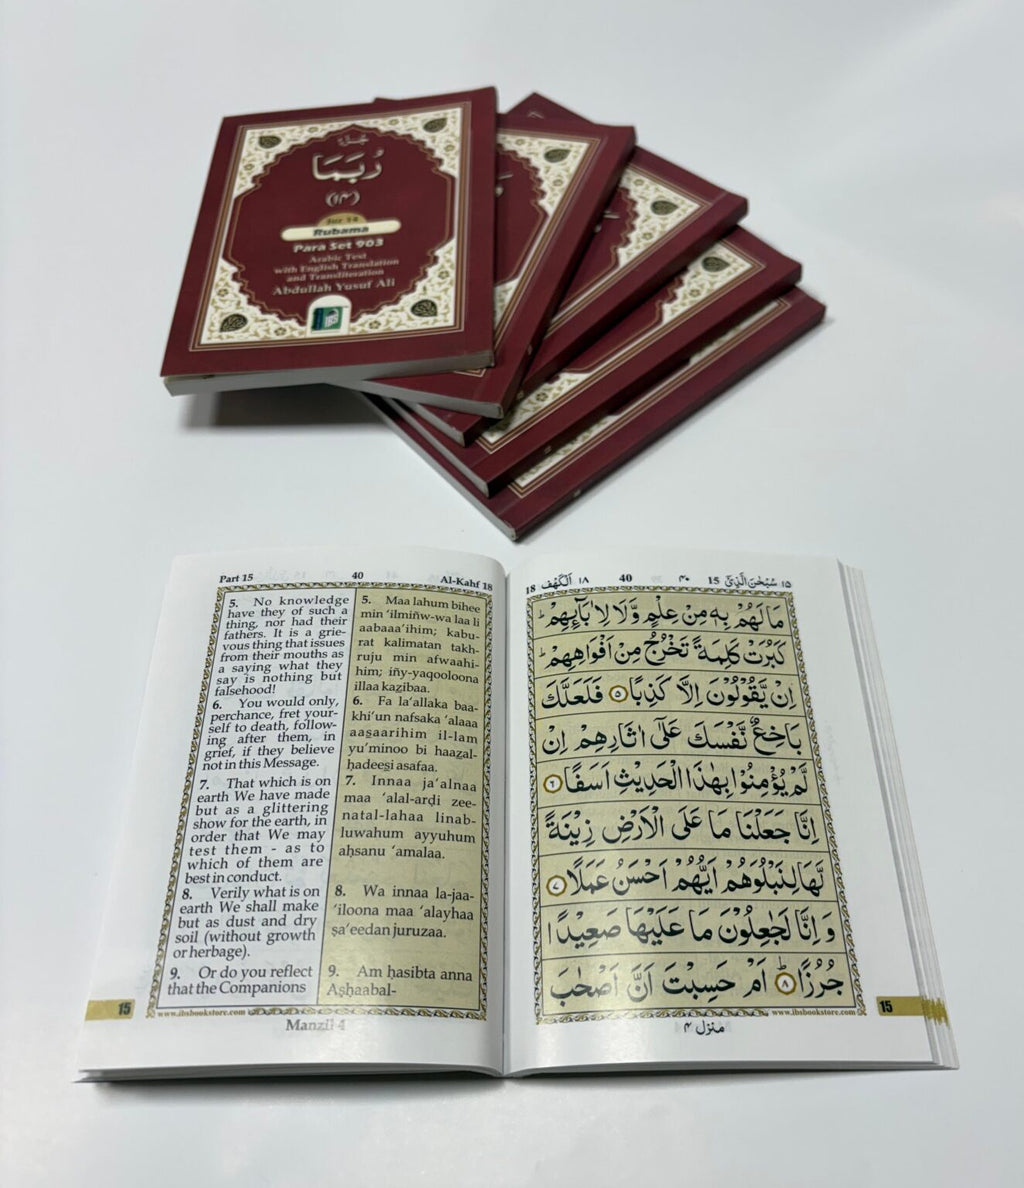 جزء
رُبَمَا
(۱۴)
Juz 14
Rubama
Para Set 903
Arabic Text
with English Translation
and Transliteration
Abdullah Yusuf Ali
IBS
Part 15
40
Al-Kahf 18
5. No knowledge
have they of such a
thing, nor had their
fathers. It is a grie-
vous thing that issues
from their mouths as
a saying what they
say is nothing but
falsehood!
6. You would only,
perchance, fret your-
self to death, follow-
ing after them, in
grief, if they believe
not in this Message.
7. That which is on
earth We have made
but as a glittering
show for the earth, in
order that We may
test them - as to
which of them are
best in conduct.
8. Verily what is on
earth We shall make
but as dust and dry
soil (without growth
or herbage).
9. Or do you reflect
that the Companions
5. Maa lahum bihee
min ‘ilmiñw-wa laa li
aabaaa’ihim; kabu-
rat kalimatan takh-
ruju min afwaahi-
him; iñy-yaqooloona
illaa kaẕibaa.
6. Fa la‘allaka baa-
khi‘un nafsaka ‘alaaa
aas̱aarihim il-lam
yu’minoo bi haaẕal-
ḥadees̱i asafaa.
7. Innaa ja‘alnaa
maa ‘alal-arḍi zee-
natal-lahaa linab-
luwahum ayyuhum
aḥsanu ‘amalaa.
8. Wa innaa la-jaa-
‘iloona maa ‘alayhaa
ṣa‘eedan juruzaa.
9. Am ḥasibta anna
Aṣḥaabal-
15
www.ibsbookstore.com
Manzil 4
18 اَلْكَهْف ۱۸
40
۴۰
15 سُبْحٰنَ الَّذِيْٓ ۱۵
مَا لَهُمْ بِهٖ مِنْ عِلْمٍ وَّلَا لِاٰبَآىِٕهِمْ ؕ
كَبُرَتْ كَلِمَةً تَخْرُجُ مِنْ اَفْوَاهِهِمْ ؕ
اِنْ يَّقُوْلُوْنَ اِلَّا كَذِبًا ۵ فَلَعَلَّكَ
بَاخِعٌ نَّفْسَكَ عَلٰٓى اٰثَارِهِمْ اِنْ
لَّمْ يُؤْمِنُوْا بِهٰذَا الْحَدِيْثِ اَسَفًا ۶
اِنَّا جَعَلْنَا مَا عَلَى الْاَرْضِ زِيْنَةً
لَّهَا لِنَبْلُوَهُمْ اَيُّهُمْ اَحْسَنُ عَمَلًا ۷
وَ اِنَّا لَجٰعِلُوْنَ مَا عَلَيْهَا صَعِيْدًا
جُرُزًا ؕ ۸ اَمْ حَسِبْتَ اَنَّ اَصْحٰبَ
15
www.ibsbookstore.com
منزل ۴